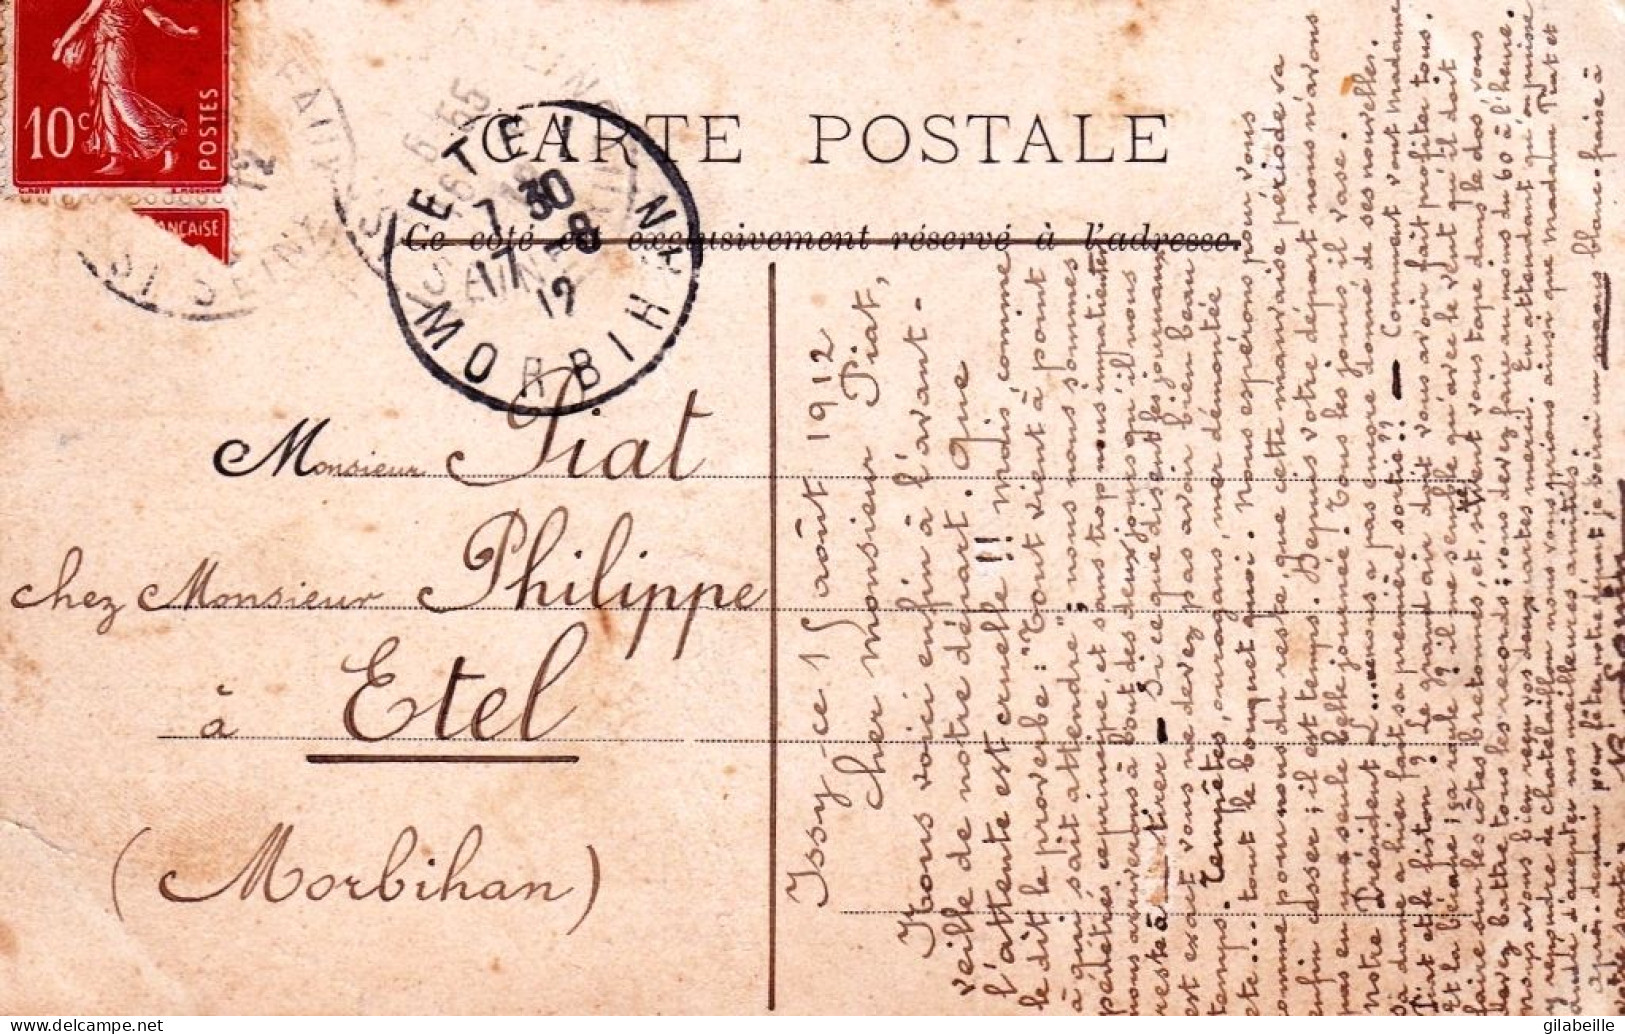 10c
POSTES
CARTE POSTALE
Ce côté est exclusivement réservé à l'adresse.
ETEL
7 30
17 - 8
12
MORBIHAN
Monsieur Piat
chez Monsieur Philippe
à Etel
(Morbihan)
Issy-ce 15 août 1912
Cher monsieur Piat,
Nous voici enfin à l'avant-
veille de notre départ. Que
l'attente est cruelle !! Mais comme
le dit le proverbe : "Tout vient à point
à qui sait attendre", nous nous sommes
pénétrés ce principe, et sans trop nous impatienter
nous arriverons à bout des deux jours qu'il nous
reste à tirer - Si ce que disent les journaux
est exact vous ne devez pas avoir bien beau
temps. Tempêtes, ouragans, mer démontée
etc... tout le bouquet quoi. Nous espérons pour vous
comme pour nous du reste, que cette mauvaise période va
enfin cesser ; il est temps. Depuis votre départ nous n'avons
pas eu une seule belle journée. Tous les jours il vase.
notre Président L... nous a pas encore donné de ses nouvelles.
Sa dame a hier fait sa première sortie?? - Comment vont Madame
Piat et le fiston ? Le grand air doit vous avoir fait profiter tous.
Et la bécane ; ça roule ? il me semble qu'avec le vent qu'il doit
faire sur les côtes bretonnes, et, si le vent vous tape dans le dos vous
devez battre tous les records ; vous devez faire au moins du 60 à l'heure.
nous avons bien reçu vos deux cartes merci. En attendant qu'on puisse
y répondre de Chatelaillon nous vous prions ainsi que madame Piat et
André d'accepter nos meilleures amitiés.
après-demain pour fêter notre départ je boirai un macau blanc-fraise à
votre santé.
gilabeille